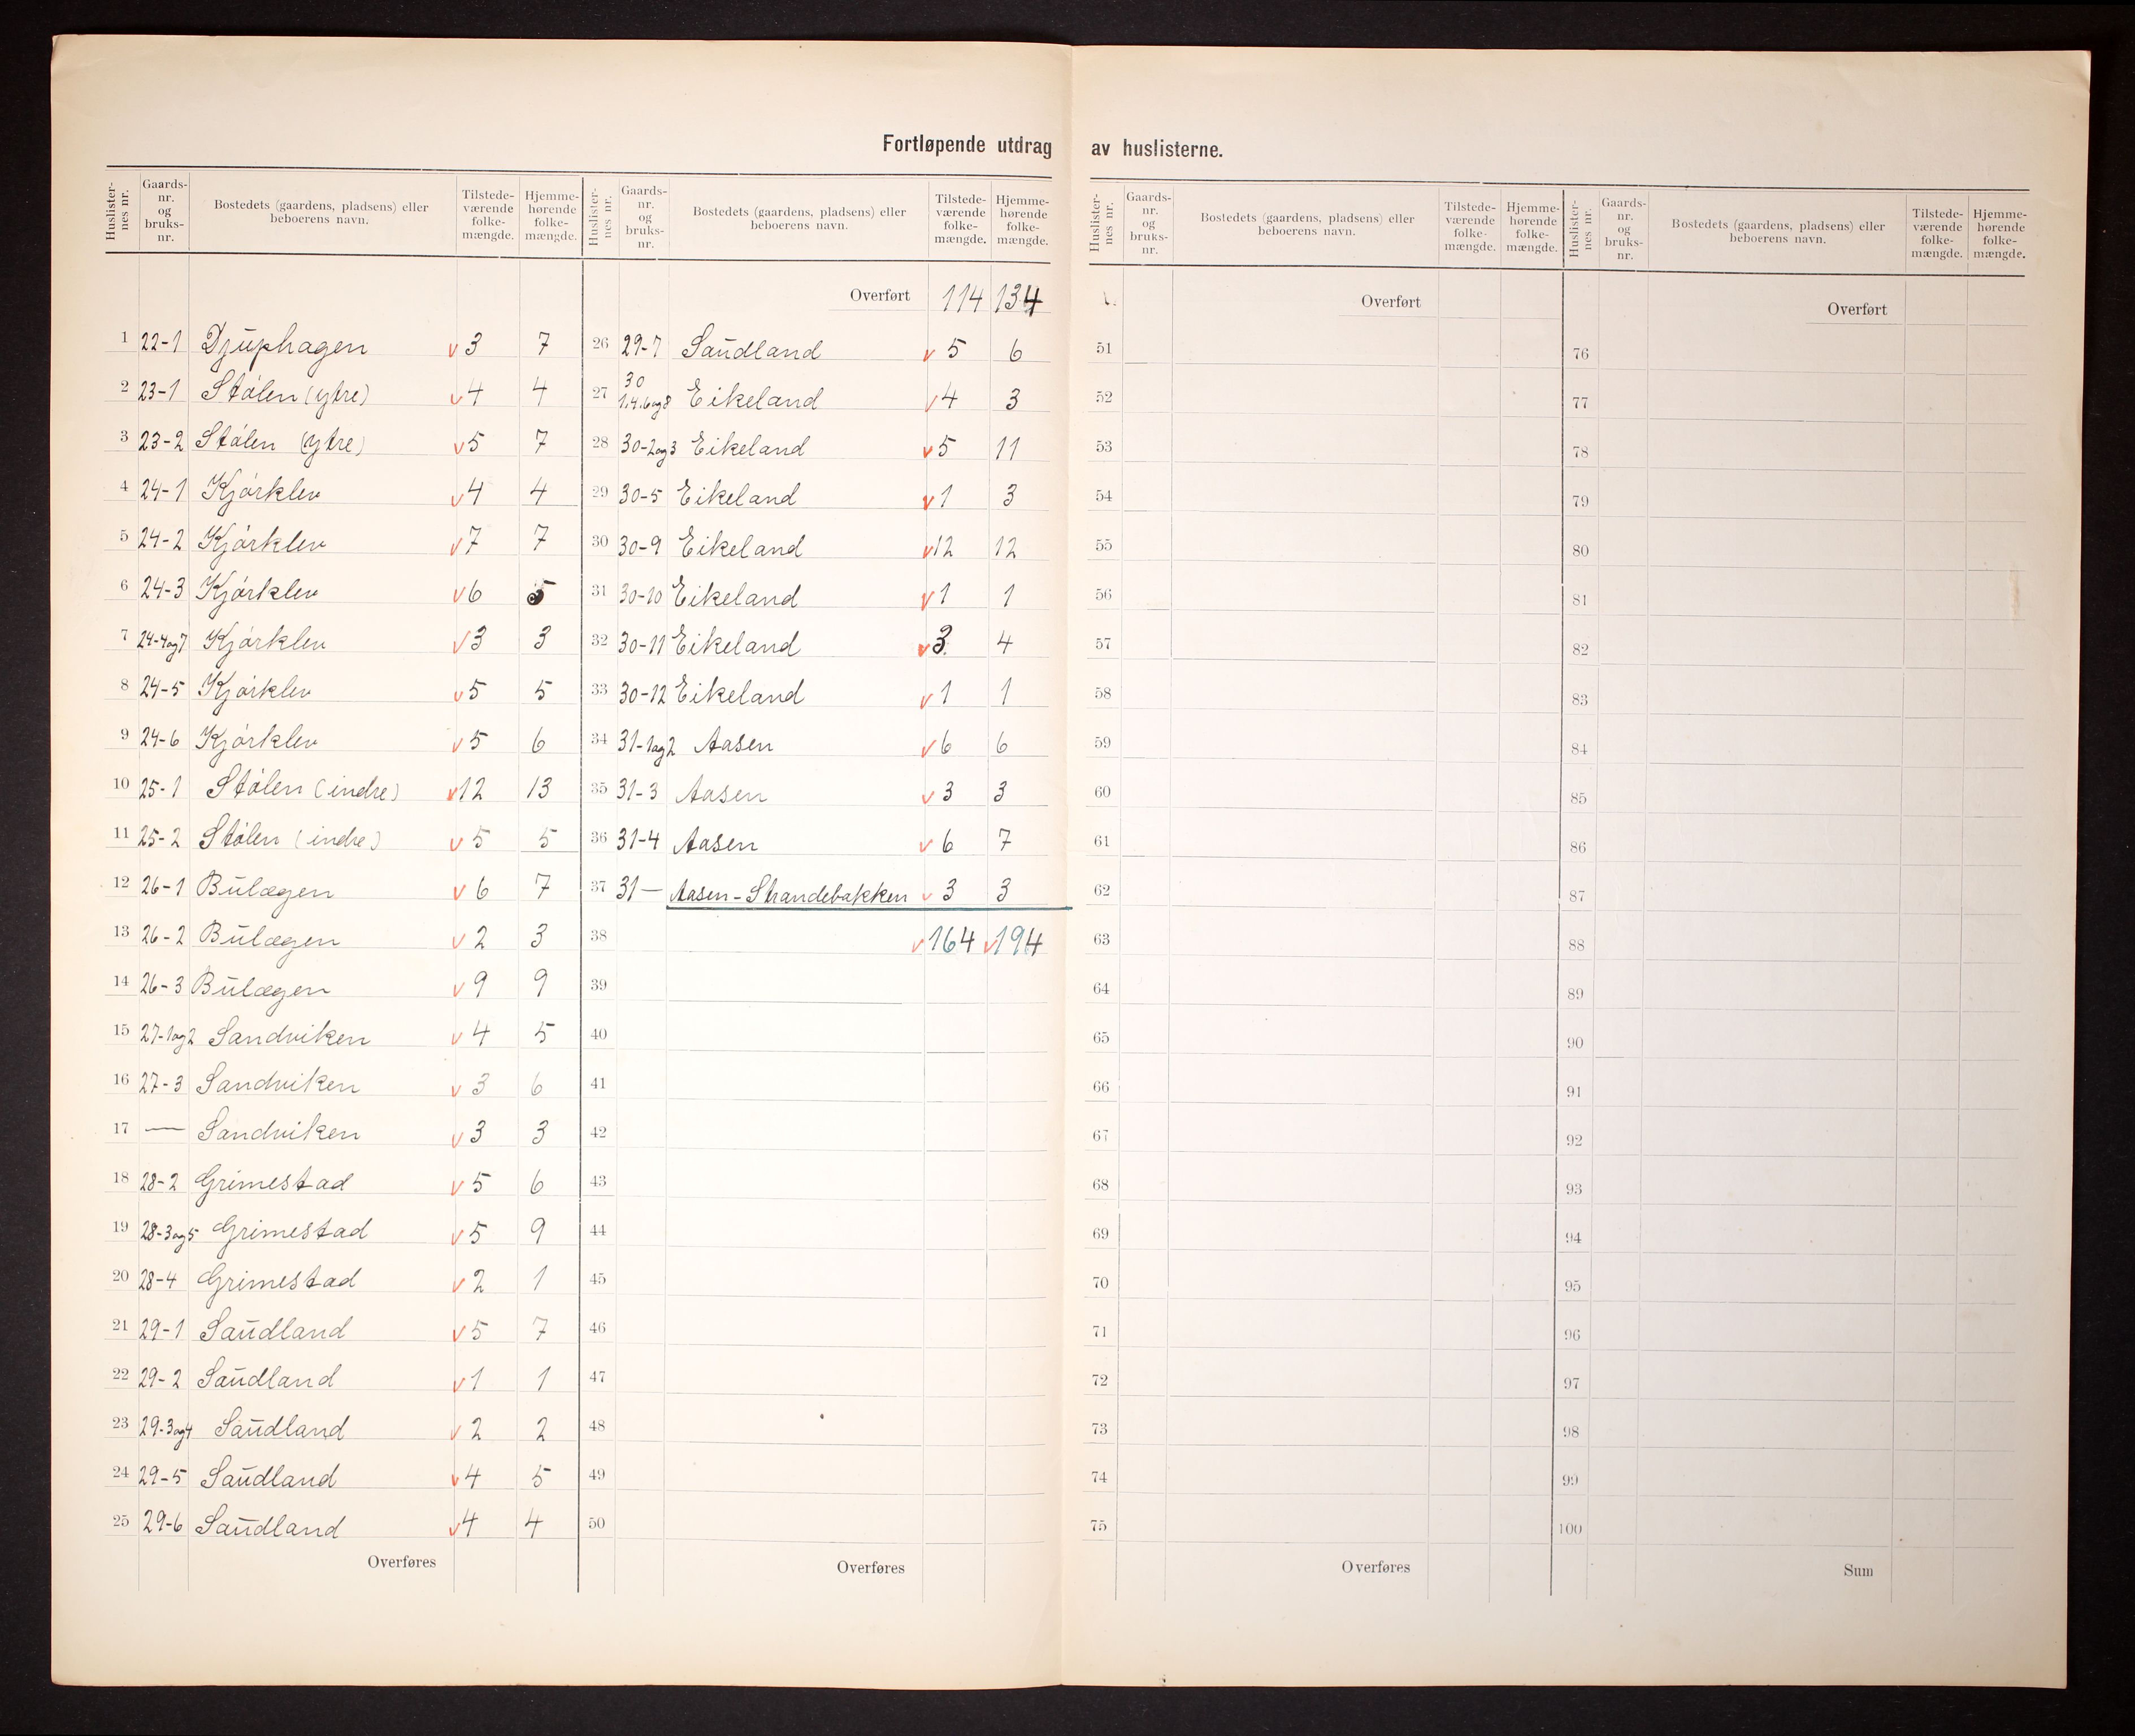 Fortløpende utdrag av huslisterne.
Huslister-nes nr. Gaards-nr. og bruks-nr. Bostedets (gaardens, pladsens) eller beboerens navn. Tilstede-værende folke-mængde. Hjemme-hørende folke-mængde.
1 22-1 Djuphagen v 3 7
2 23-1 Stølen (ytre) v 4 4
3 23-2 Stølen (ytre) v 5 7
4 24-1 Kjørklev v 4 4
5 24-2 Kjørklev v 7 7
6 24-3 Kjørklev v 6 5
7 24-4og7 Kjørklev v 3 3
8 24-5 Kjørklev v 5 5
9 24-6 Kjørklev v 5 6
10 25-1 Stølen (indre) v 12 13
11 25-2 Stølen (indre) v 5 5
12 26-1 Bulægen v 6 7
13 26-2 Bulægen v 2 3
14 26-3 Bulægen v 9 9
15 27-1og2 Sandviken v 4 5
16 27-3 Sandviken v 3 6
17 — Sandviken v 3 3
18 28-2 Grimestad v 5 6
19 28-3og5 Grimestad v 5 9
20 28-4 Grimestad v 2 1
21 29-1 Saudland v 5 7
22 29-2 Saudland v 1 1
23 29-3og4 Saudland v 2 2
24 29-5 Saudland v 4 5
25 29-6 Saudland v 4 4
Overføres
Huslister-nes nr. Gaards-nr. og bruks-nr. Bostedets (gaardens, pladsens) eller beboerens navn. Tilstede-værende folke-mængde. Hjemme-hørende folke-mængde.
Overført 114 134
26 29-7 Saudland v 5 6
27 30 1.4.6og8 Eikeland v 4 3
28 30-2og3 Eikeland v 5 11
29 30-5 Eikeland v 1 3
30 30-9 Eikeland v 12 12
31 30-10 Eikeland v 1 1
32 30-11 Eikeland v 3 4
33 30-12 Eikeland v 1 1
34 31-1og2 Aasen v 6 6
35 31-3 Aasen v 3 3
36 31-4 Aasen v 6 7
37 31— Aasen-Strandebakken v 3 3
38 v 164 v 194
39
40
41
42
43
44
45
46
47
48
49
50
Overføres
Huslister-nes nr. Gaards-nr. og bruks-nr. Bostedets (gaardens, pladsens) eller beboerens navn. Tilstede-værende folke-mængde. Hjemme-hørende folke-mængde.
Overført
51
52
53
54
55
56
57
58
59
60
61
62
63
64
65
66
67
68
69
70
71
72
73
74
75
Overføres
Huslister-nes nr. Gaards-nr. og bruks-nr. Bostedets (gaardens, pladsens) eller beboerens navn. Tilstede-værende folke-mængde. Hjemme-hørende folke-mængde.
Overført
76
77
78
79
80
81
82
83
84
85
86
87
88
89
90
91
92
93
94
95
96
97
98
99
100
Sum